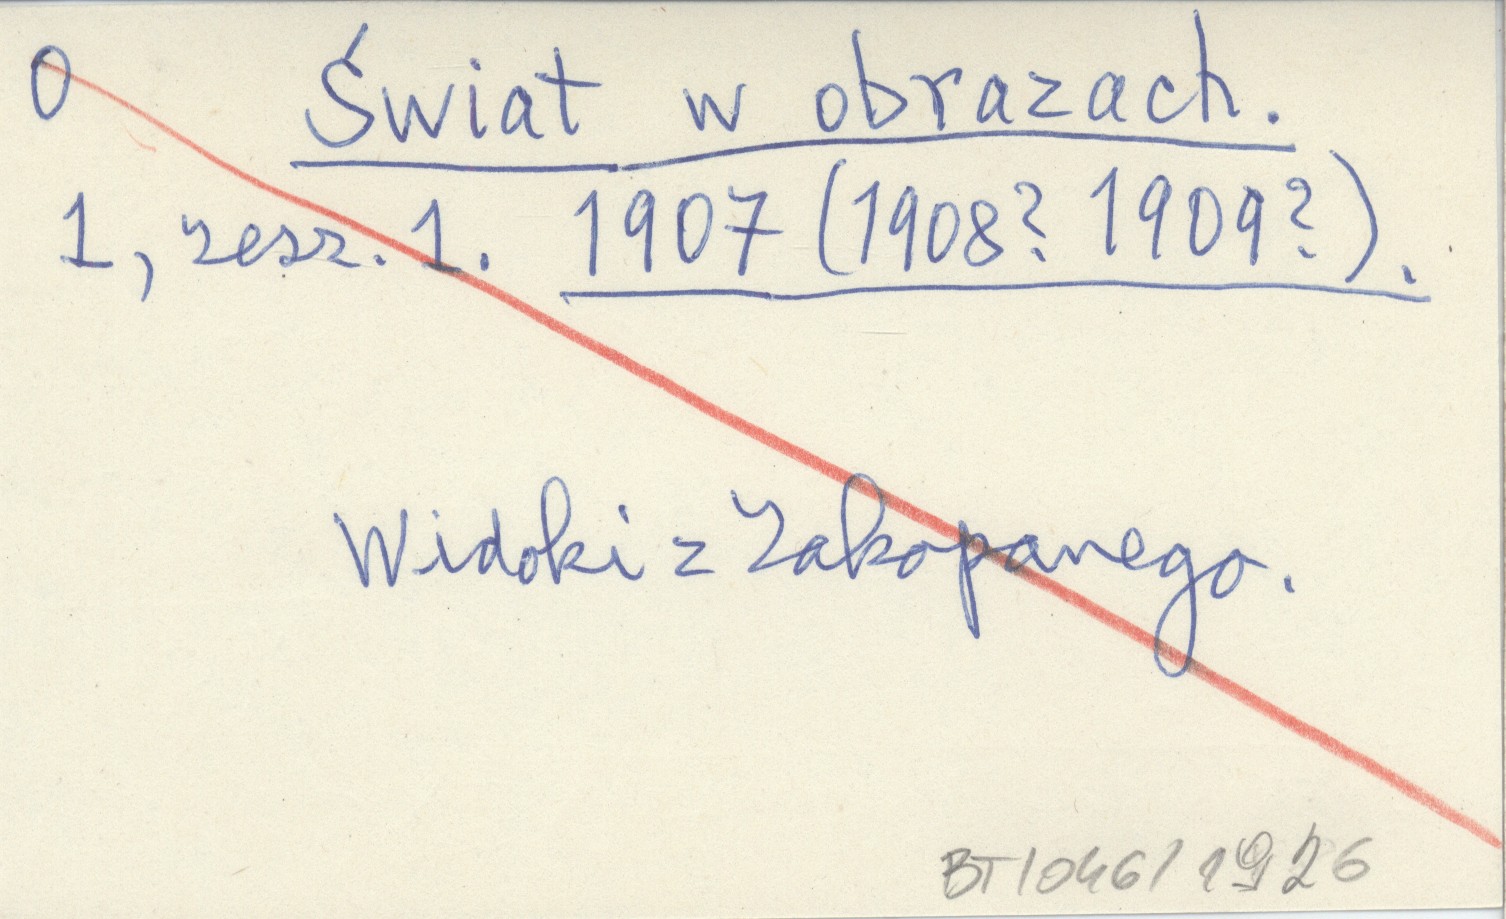 0 Świat w obrazach.
1, zesz. 1. 1907 (1908? 1909?).
Widoki z Zakopanego.
BT/046/1926